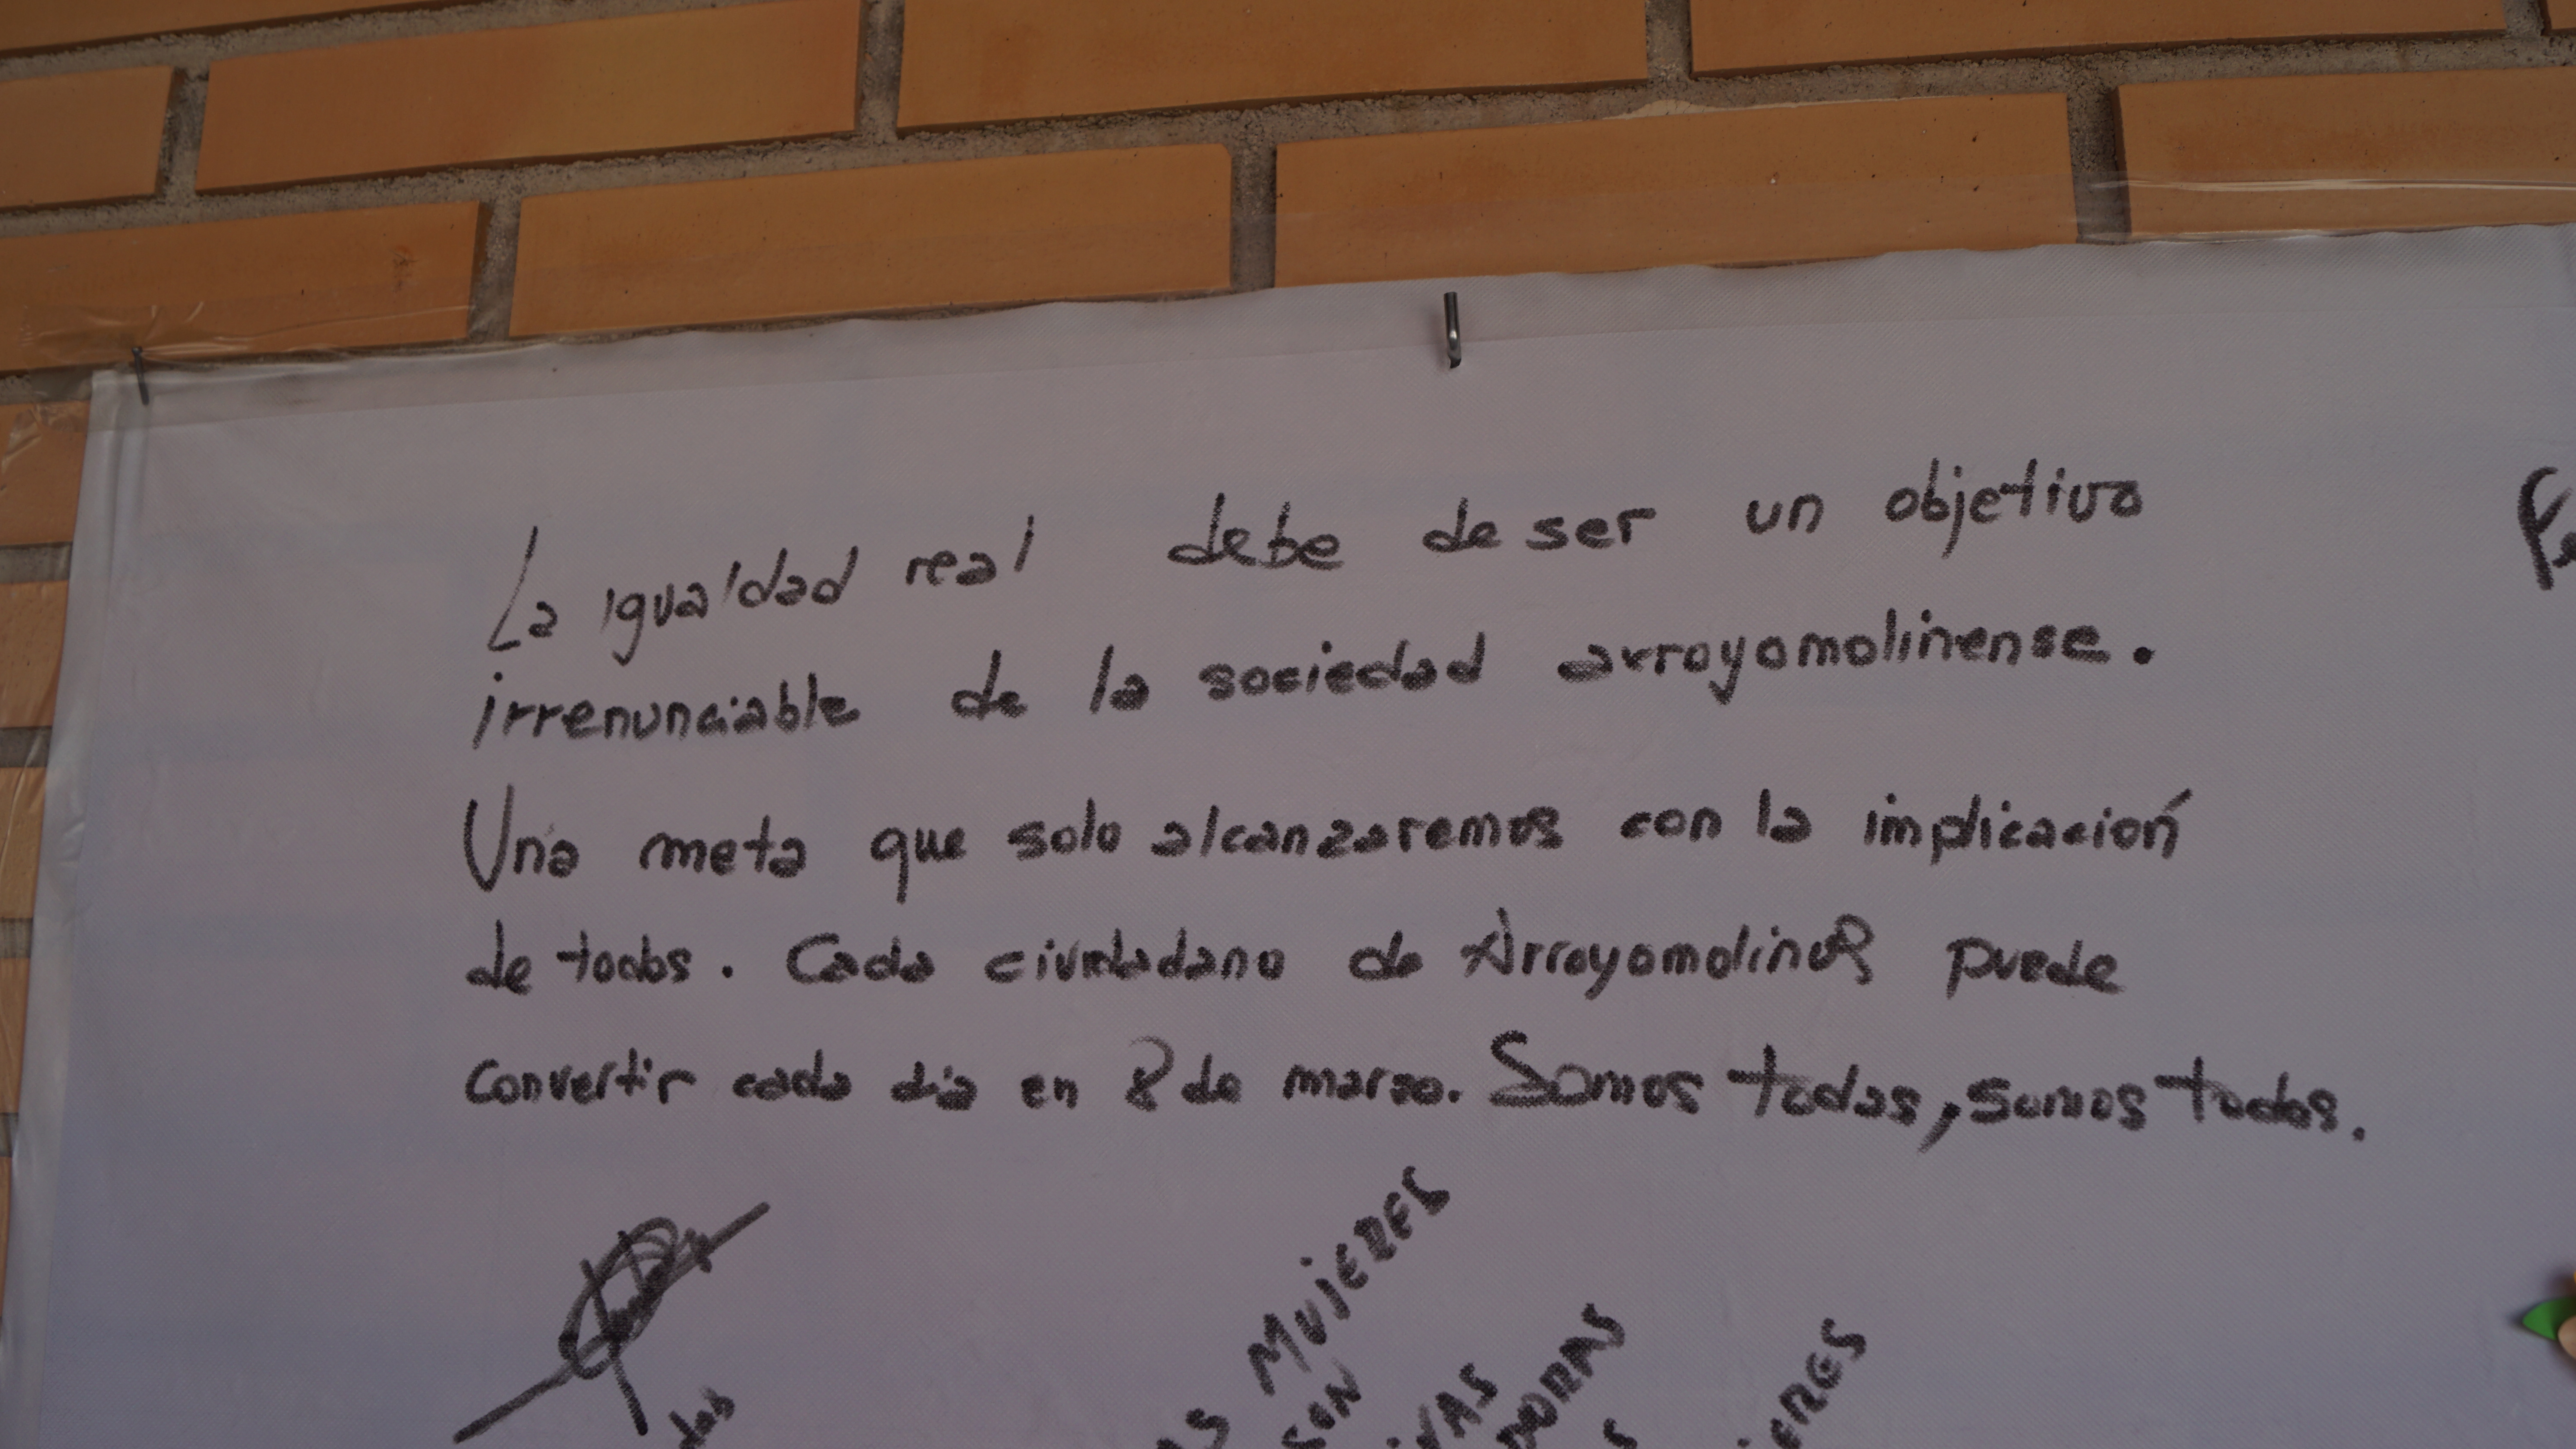 La igualdad real debe de ser un objetivo
irrenunciable de la sociedad arroyomolinense.
Una meta que solo alcanzaremos con la implicación
de todos. Cada ciudadano de Arroyomolinos puede
convertir cada dia en 8 de marzo. Somos todas, somos todos.
MUJERES
SON